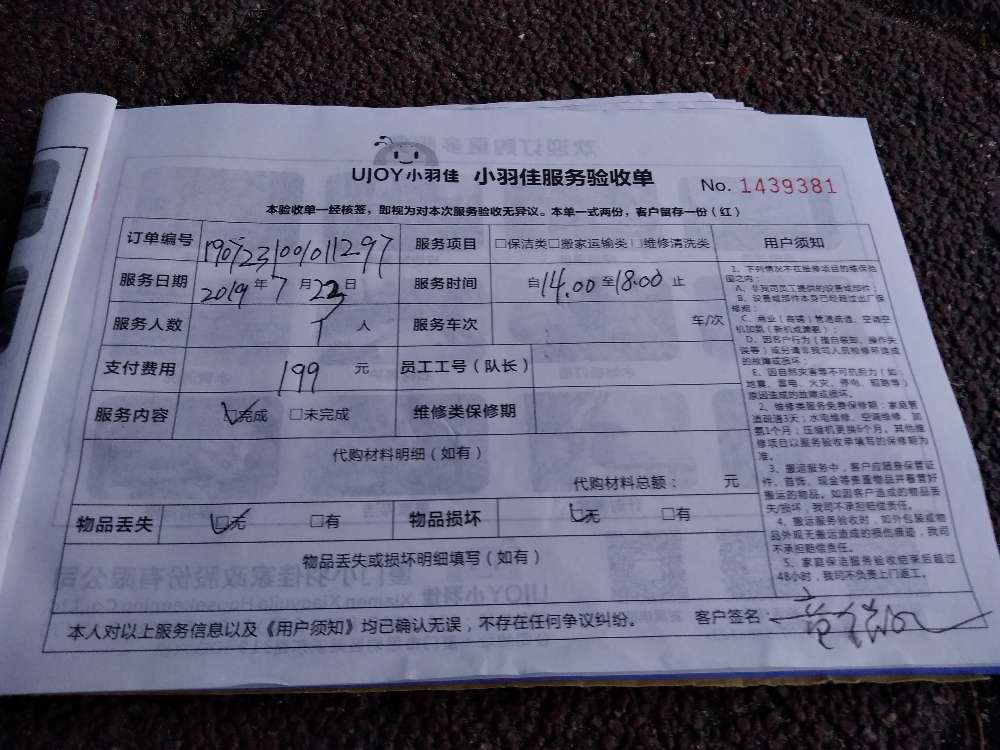 UJOY小羽佳 小羽佳服务验收单 No. 1439381
本验收单一经核签，即视为对本次服务验收无异议。本单一式两份，客户留存一份（红）
订单编号 1907231001011297 服务项目 □保洁类□搬家运输类□维修清洗类
服务日期 2019年7月23日 服务时间 自14.00至18.00止
服务人数 1 人 服务车次 车/次
支付费用 199 元 员工工号（队长）
服务内容 □完成 □未完成 维修类保修期
代购材料明细（如有）
代购材料总额： 元
物品丢失 □无 □有 物品损坏 □无 □有
物品丢失或损坏明细填写（如有）
本人对以上服务信息以及《用户须知》均已确认无误，不存在任何争议纠纷。 客户签名：
用户须知
1、下列情况不在维修项目的维保范
围之内：
A、非我司员工提供的设备或部件；
B、设备或部件本身已经超过出厂保
修期；
C、商业（商铺）管道疏通、空调空
机加氨（新机或清氨）；
D、因客户行为（擅自装卸、操作失
误等）或另请非我司人员检修所造成
的故障或损坏；
E、因自然灾害等不可抗拒力（如：
地震、雷电、火灾、停电、短路等）
原因造成的故障或损坏。
2、维修类服务免费保修期：家庭管
道疏通3天；水电维修、空调维修、加
氨1个月；压缩机更换6个月。其他维
修项目以服务验收单填写的保修期为
准。
3、搬运服务中，客户应随身保管证
件、首饰、现金等贵重物品并看管好
搬运的物品。如因客户造成的物品丢
失/损坏，我司不承担赔偿责任。
4、搬运服务验收时，如外包装或物
品外观无搬运造成的损伤痕迹，我司
不承担赔偿责任。
5、家庭保洁服务验收结束后超过
48小时，我司不负责上门返工。